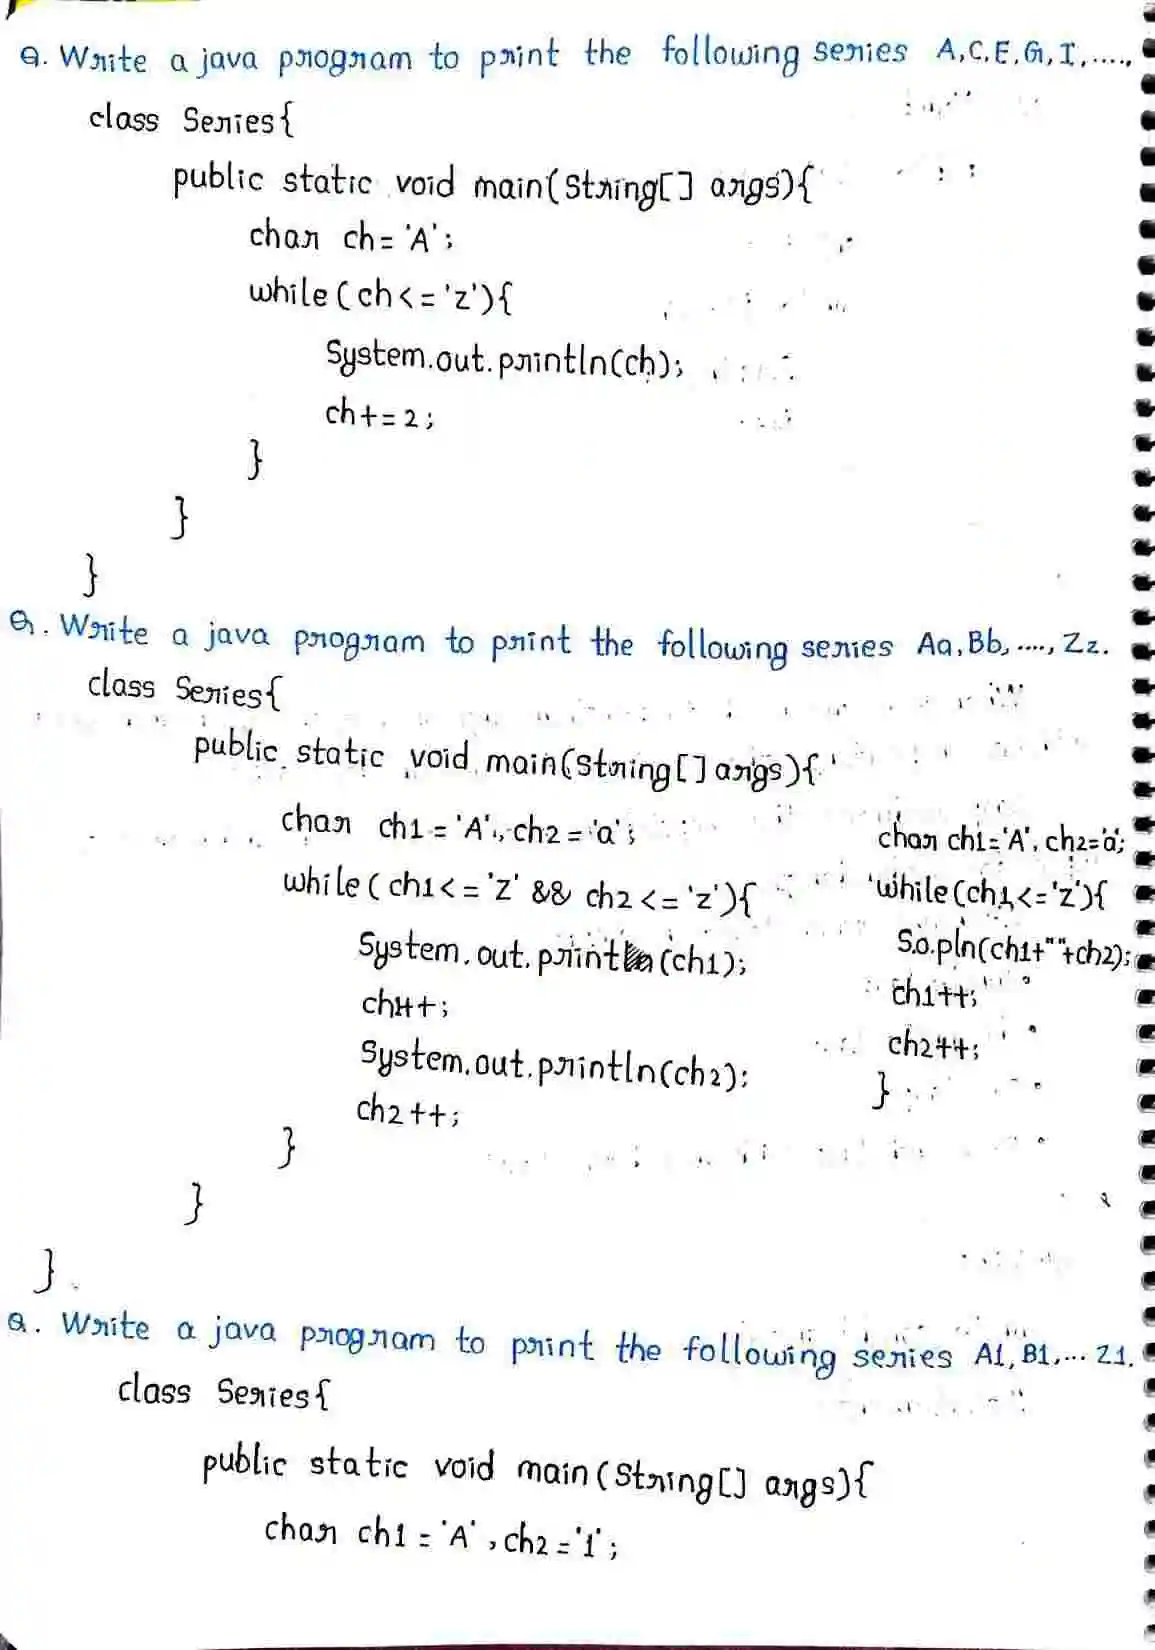 Q. Write a java program to print the following series A,C,E,G,I,....,
class Series{
public static void main(String[] args){
char ch= 'A';
while(ch<='z'){
System.out.println(ch);
ch+=2;
}
}
}
Q. Write a java program to print the following series Aa,Bb,....,Zz.
class Series{
public static void main(String[] args){
char ch1='A', ch2='a';
while(ch1<='z' && ch2<='z'){
System.out.println(ch1);
ch1++;
System.out.println(ch2);
ch2++;
}
}
}
char ch1='A', ch2='a';
while(ch1<='z'){
S.o.pln(ch1+""+ch2);
ch1++;
ch2++;
}
Q. Write a java program to print the following series A1,B1,...Z1.
class Series{
public static void main(String[] args){
char ch1='A',ch2='1';